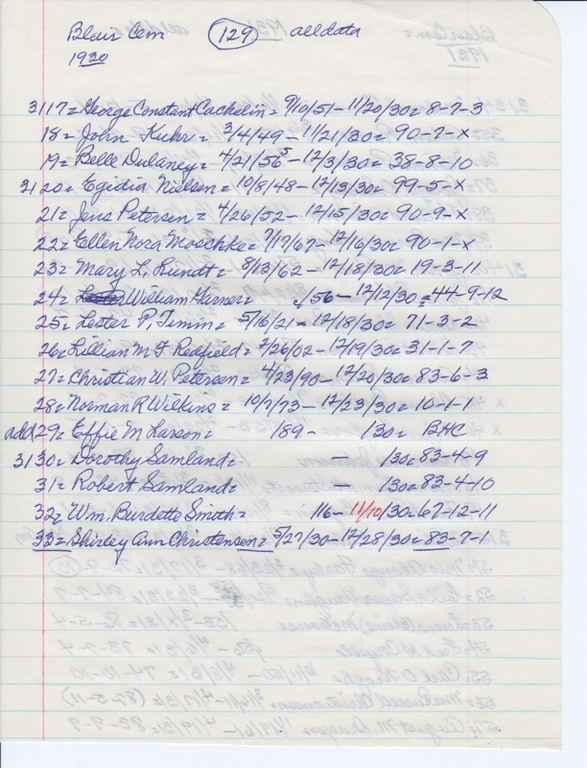 Blair Cem (129) alldata
1930
3117= George Constant Cachelin = 9/10/51 - 11/20/30= 8-7-3
18= John Kuhr = 3/4/49 - 11/21/30= 90-7-X
19= Belle Dulaney = 4/21/56 - 12/3/30= 38-8-10
3120= Egidia Nielsen = 10/8/48 - 12/13/30= 99-5-X
21= Jens Petersen = 4/26/52 - 12/15/30= 90-9-X
22= Ellen Nora Moschke= 7/17/67 - 12/16/30= 90-1-X
23= Mary L. Lundt = 8/13/62 - 12/18/30= 19-3-11
24= William Garner= /56 - 12/12/30= 44-9-12
25= Lester P. Timm= 5/16/21 - 12/18/30= 71-3-2
26= Lillian M F Redfield= 2/26/02 - 12/19/30= 31-1-7
27= Christian W. Petersen= 4/23/90 - 12/20/30= 83-6-3
28= Norman R Wilkins = 10/7/73 - 12/23/30= 10-1-1
add 29= Effie M Larson= /89 - /30= BHC
3130= Dorothy Samland= - /30= 83-4-9
31= Robert Samland= - /30= 83-4-10
32= Wm. Burdette Smith= 16 - 11/10/30= 67-12-11
33= Shirley Ann Christensen= 5/27/30 - 12/28/30= 83-7-1